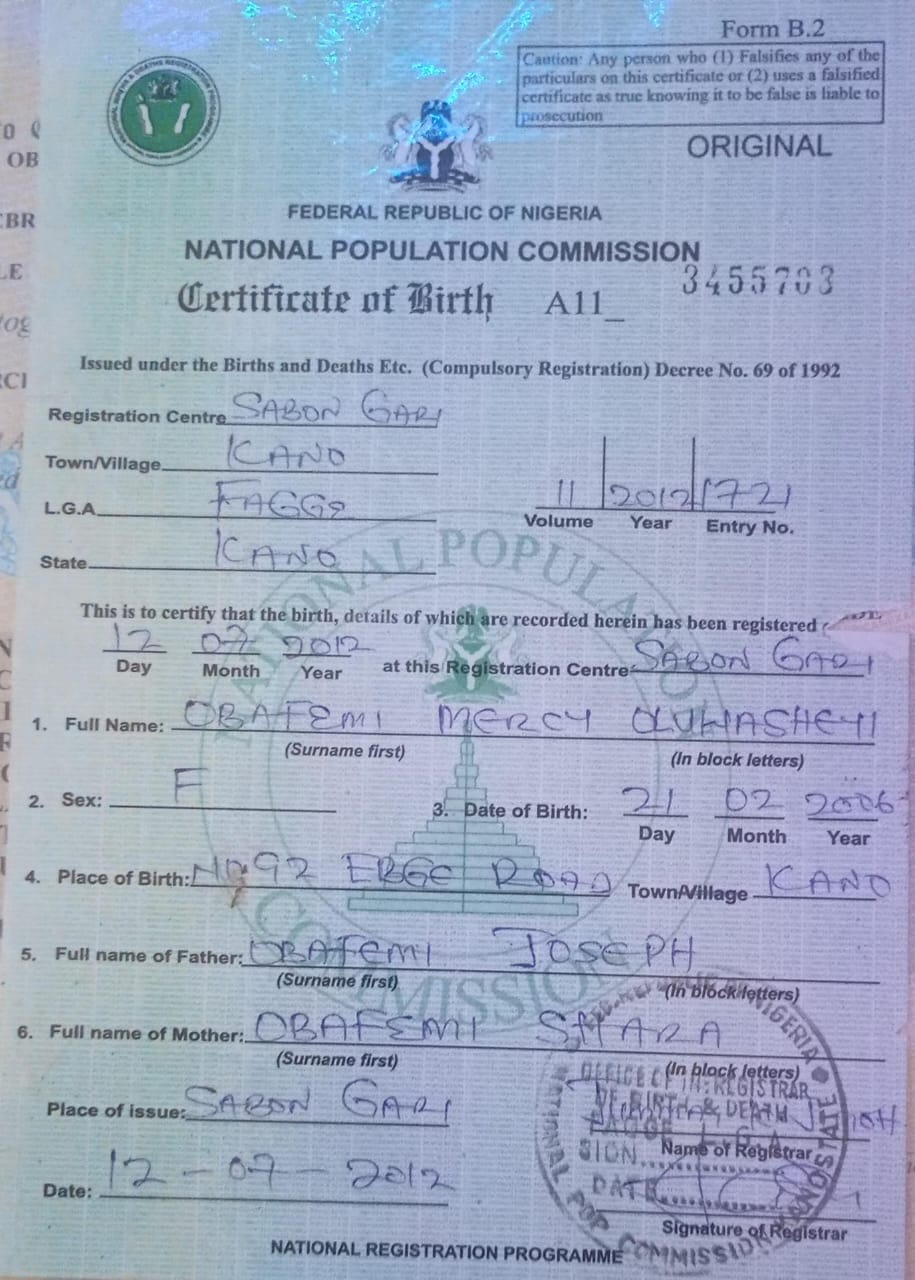 Form B.2
Caution: Any person who (1) Falsifies any of the
particulars on this certificate or (2) uses a falsified
certificate as true knowing it to be false is liable to
prosecution
ORIGINAL
FEDERAL REPUBLIC OF NIGERIA
NATIONAL POPULATION COMMISSION
Certificate of Birth A11_ 3455703
Issued under the Births and Deaths Etc. (Compulsory Registration) Decree No. 69 of 1992
Registration Centre SABON GARI
Town/Village KANO
L.G.A. FAGGE
State KANO
11 2012 1721
Volume Year Entry No.
NATIONAL POPULATION COMMISSION
This is to certify that the birth, details of which are recorded herein has been registered
12 07 2012
Day Month Year at this Registration Centre SABON GARI
1. Full Name: OBAFEMI MERCY OLUWASHEYI
(Surname first) (In block letters)
2. Sex: F 3. Date of Birth: 21 02 2006
Day Month Year
4. Place of Birth: NO 92 ROAD Town/Village KANO
5. Full name of Father: OBAFEMI JOSEPH
(Surname first) (In block letters)
6. Full name of Mother: OBAFEMI
(Surname first) (In block letters)
Place of issue: SABON GARI
OFFICE OF REGISTRAR
OF BIRTH & DEATH
Name of Registrar
SIGN
DATE
Date: 12-07-2012
Signature of Registrar
NATIONAL REGISTRATION PROGRAMME